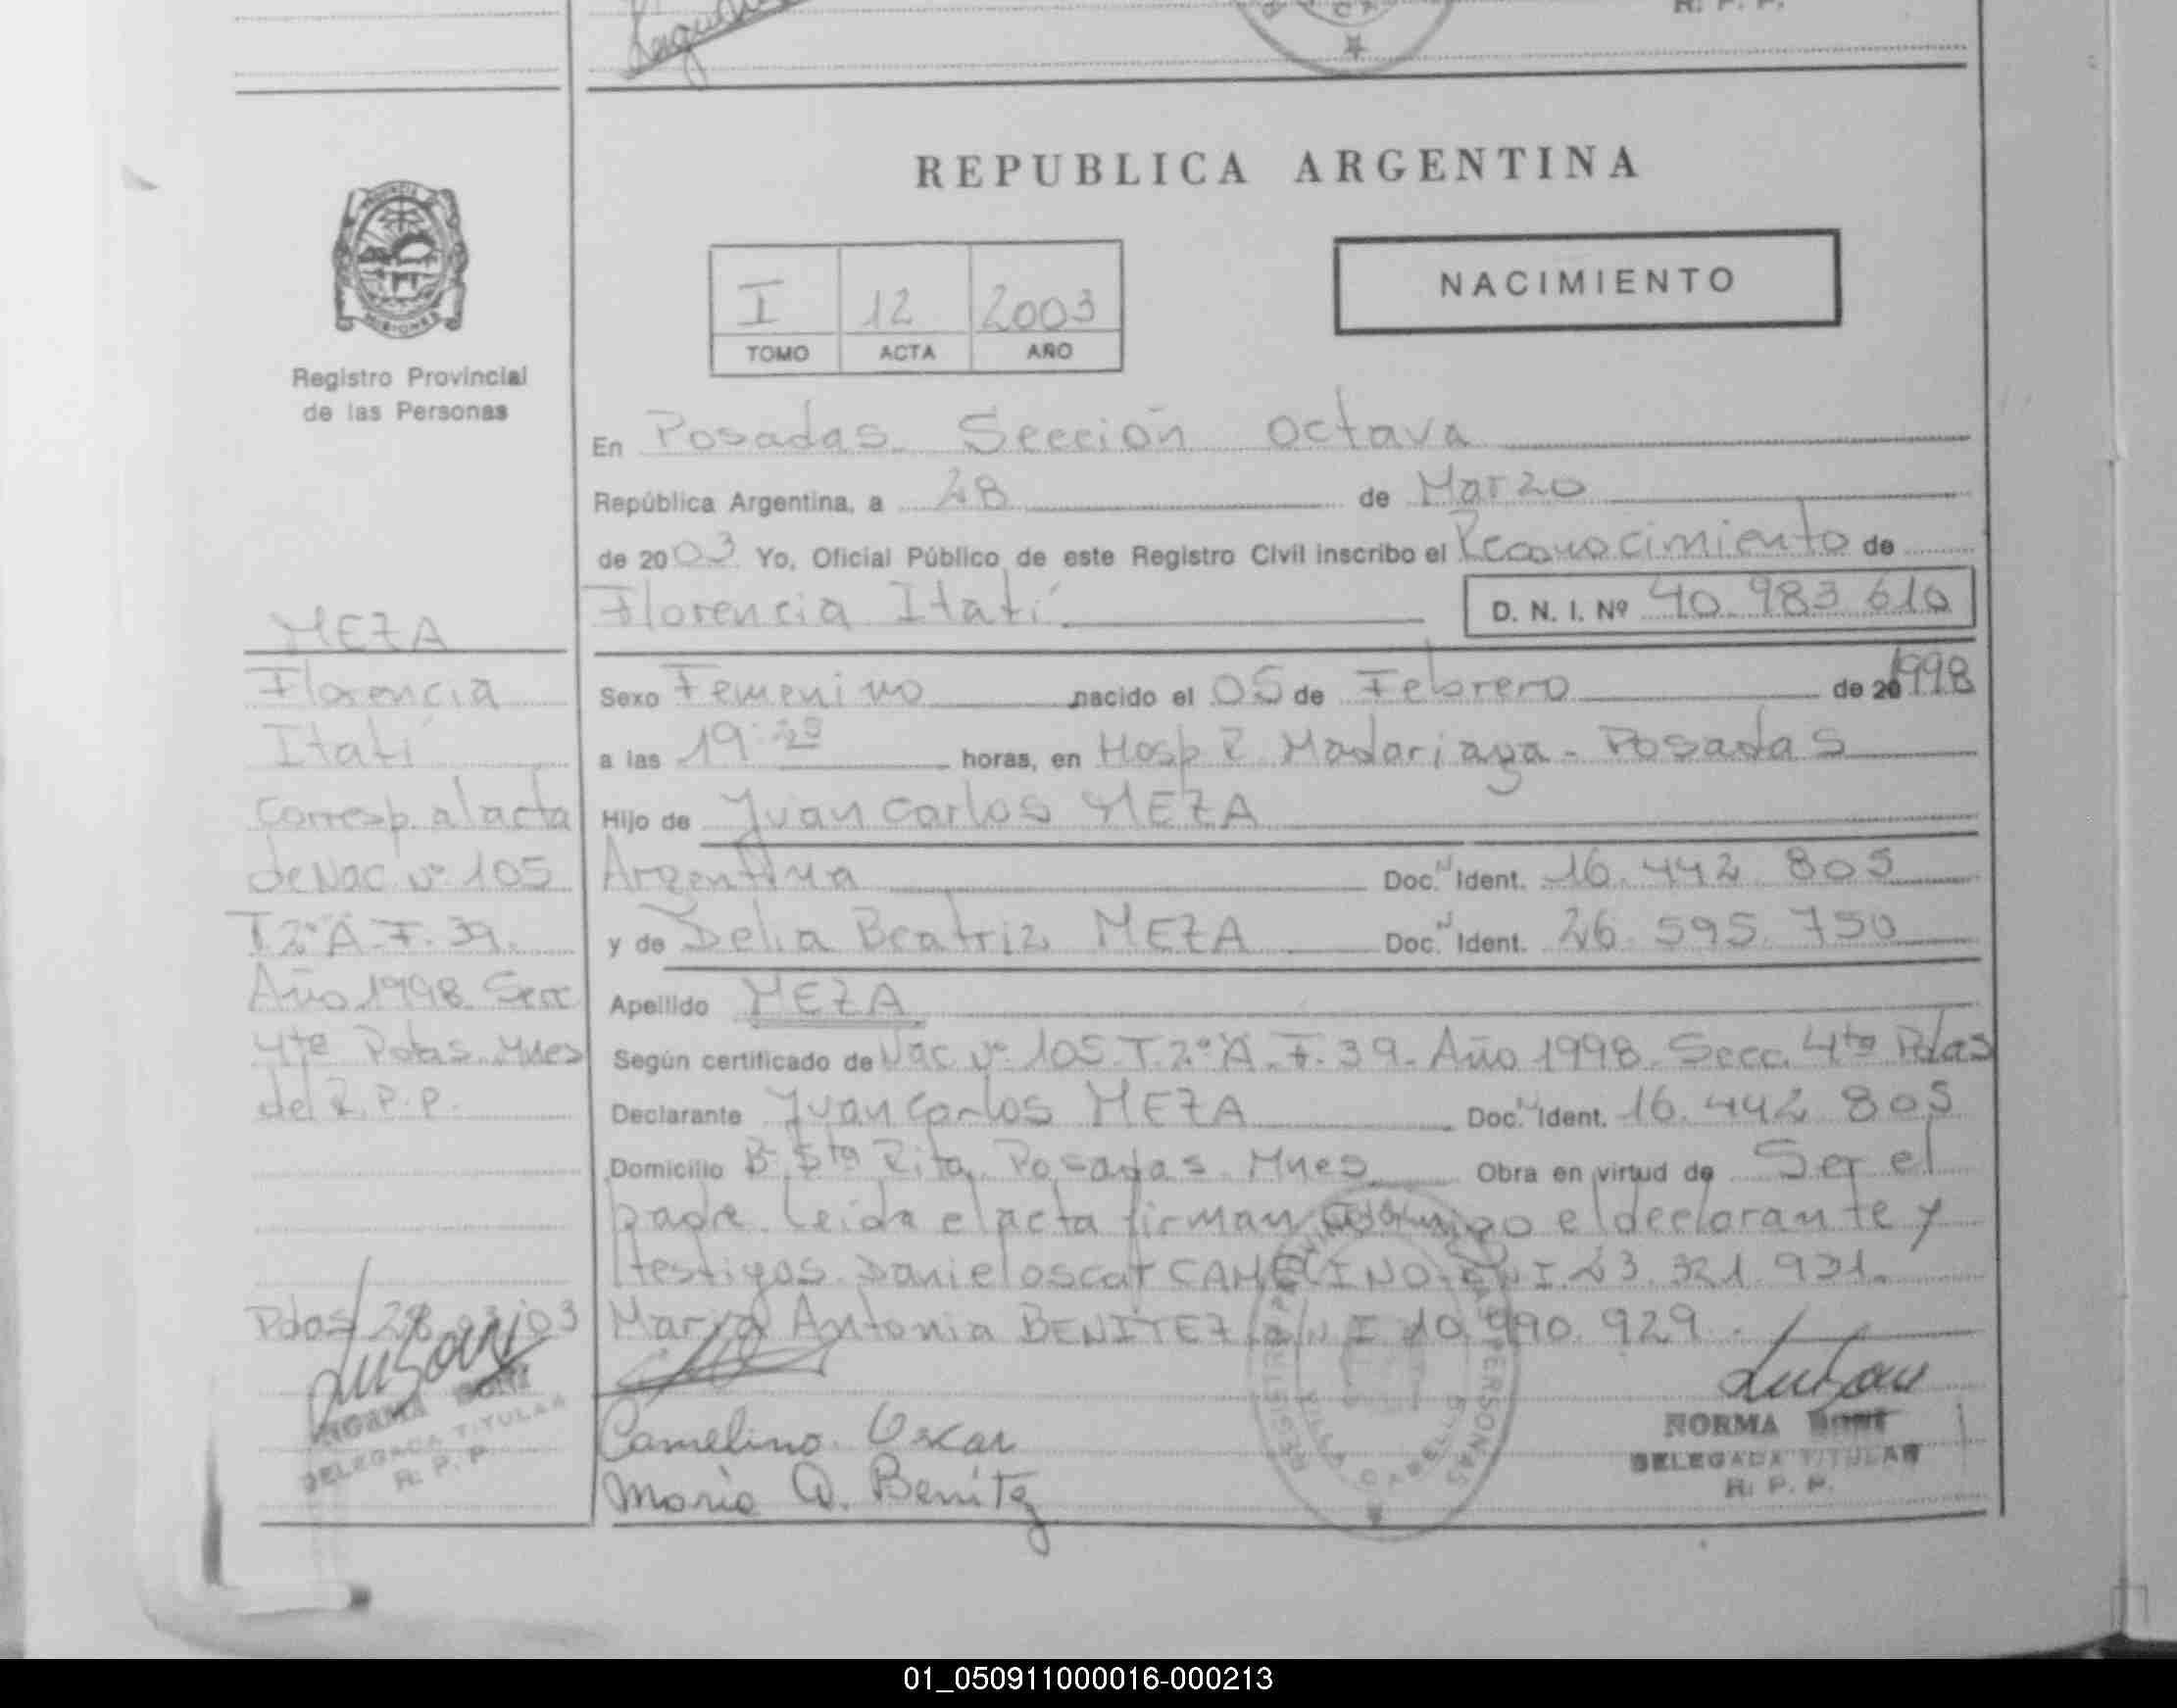 R. P. P.
REPUBLICA ARGENTINA
NACIMIENTO
I 12 2003
TOMO ACTA AÑO
MISIONES
Registro Provincial
de las Personas
En Posadas Sección Octava
República Argentina, a 28 de Marzo
de 2003 Yo, Oficial Público de este Registro Civil inscribo el Reconocimiento de
Florencia Itatí D. N. I. Nº 40.983.610
MEZA
Florencia
Itatí
Corresp. al acta
de Nac. nº 105
T 2º A F. 39.
Año 1998 Secc
4ta Pdas. Mnes
del R. P. P.
Pdas 28 03 03
NORMA BONI
DELEGADA TITULAR
R. P. P.
Sexo Femenino nacido el 05 de Febrero de 20 1998
a las 19 horas, en Hosp R Madariaga - Posadas
Hijo de Juan Carlos MEZA
Argentina Doc. Ident. 16.442.805
y de Delia Beatriz MEZA Doc. Ident. 26.595.750
Apellido MEZA
Según certificado de Nac nº 105 T. 2º A. F. 39. Año 1998. Secc. 4ta Pdas
Declarante Juan Carlos MEZA Doc. Ident. 16.442.805
Domicilio Bº Sta Rita Posadas Mnes Obra en virtud de Ser el
padre. Leida el acta firman conmigo el declarante y
testigos Daniel Oscar CAMELINO D N I 23.321.931.
Maria Antonia BENITEZ D N I 10.990.929.
Camelino Oscar
Maria A. Benitez
NORMA BONI
DELEGADA TITULAR
R. P. P.
01_050911000016-000213